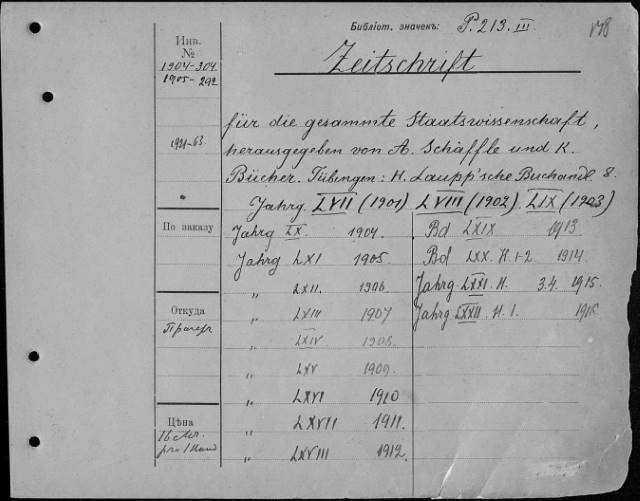 Библіот. значекъ: P. 213. III.
Инв.
№
1904-304
1905-292
1921-63.
Zeitschrift
für die gesammte Staatswissenschaft,
herausgegeben von A. Schäffle und K.
Bücher. Tübingen: H. Laupp'sche Buchandl. 8.
Jahrg. LVII (1901) LVIII (1902). LIX (1903)
По заказу
Jahrg LX. 1904.
Jahrg LXI 1905.
„ LXII. 1906.
Откуда
„ LXIII 1907
„ LXIV 1908.
„ LXV 1909.
„ LXVI 1910
„ LXVII 1911.
Цѣна
„ LXVIII 1912.
Bd LXIX 1913
Bd LXX. H. 1-2 1914.
Jahrg LXXI. H. 3.4. 1915.
Jahrg LXXII. H. 1. 1916